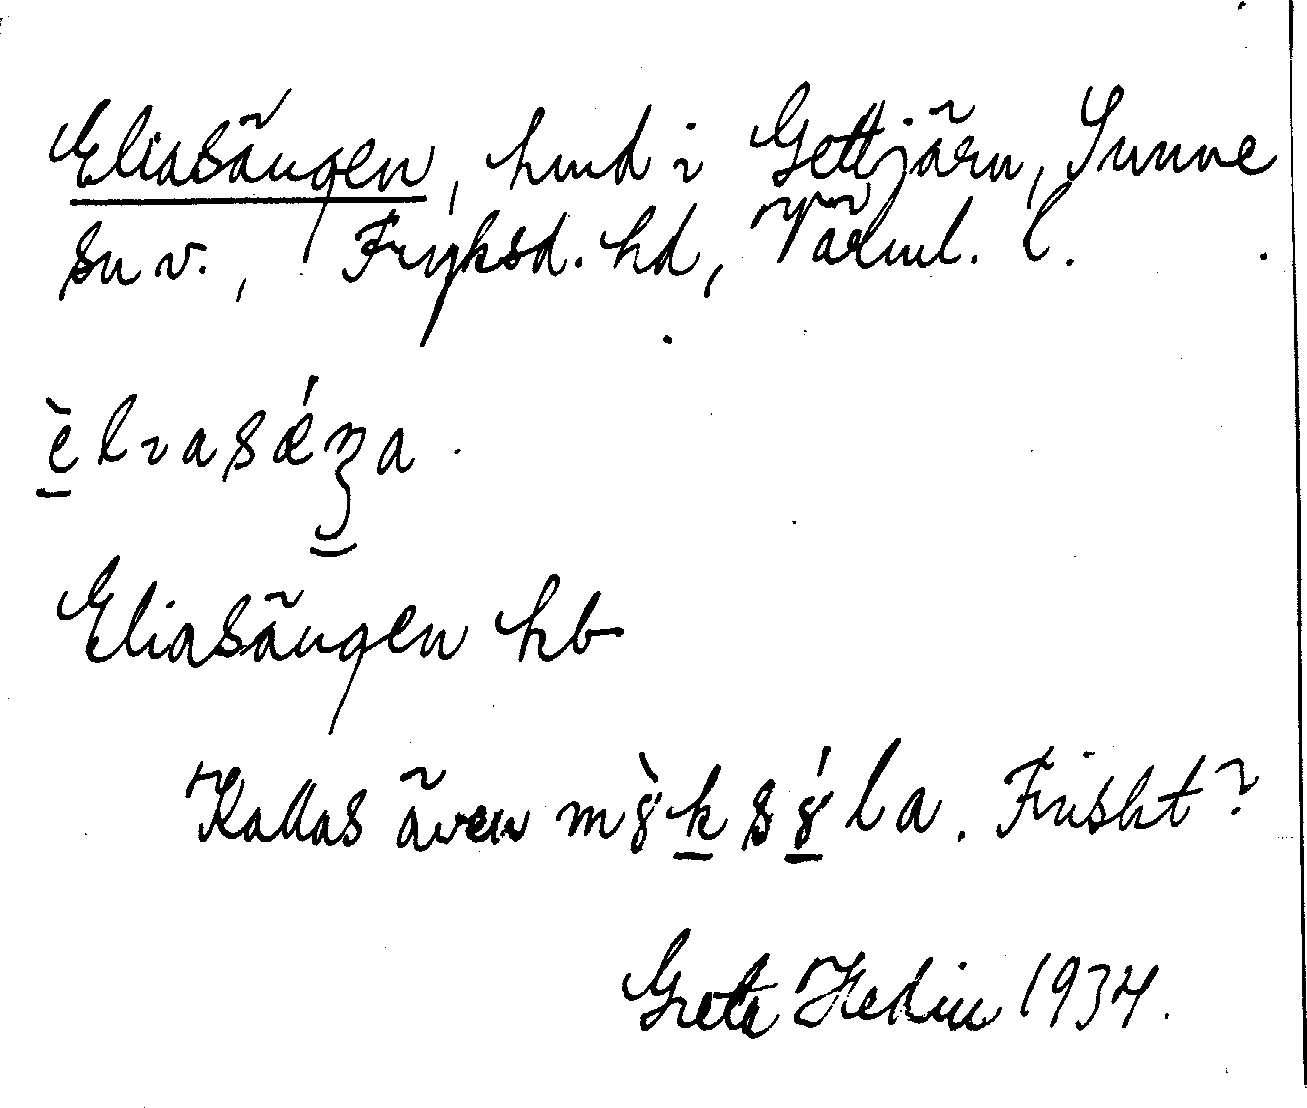 Eliasängen, hmd i Gettjärn, Sunne
sn v., Fryksd. hd, Värml. l.
èlıasǽŋa
Eliasängen hb
Kallas även m s la. Friskt?
Greta Hedin 1934.